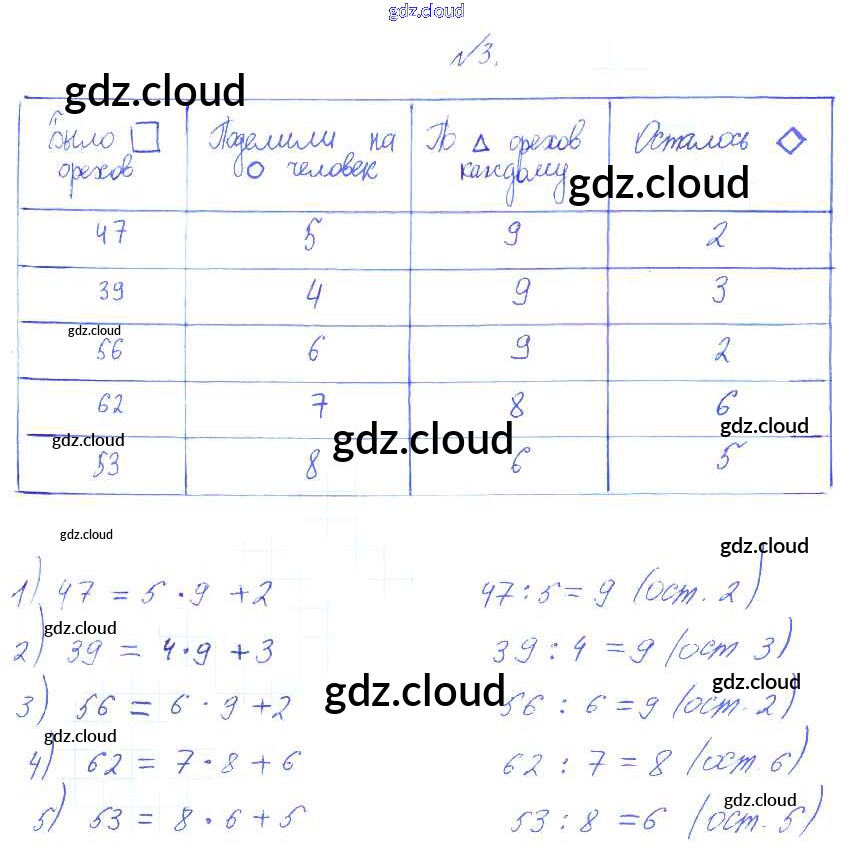 gdz.cloud
№3.
gdz.cloud
Было □ орехов
Поделили на ○ человек
По △ орехов каждому
Осталось ◇
gdz.cloud
47 5 9 2
39 4 9 3
gdz.cloud
56 6 9 2
62 7 8 6
gdz.cloud
gdz.cloud
gdz.cloud
53 8 6 5
gdz.cloud
gdz.cloud
1) 47 = 5 · 9 + 2 47 : 5 = 9 (ост. 2)
gdz.cloud
2) 39 = 4 · 9 + 3 39 : 4 = 9 (ост 3)
gdz.cloud
gdz.cloud
3) 56 = 6 · 9 + 2 56 : 6 = 9 (ост. 2)
gdz.cloud
4) 62 = 7 · 8 + 6 62 : 7 = 8 (ост. 6)
gdz.cloud
5) 53 = 8 · 6 + 5 53 : 8 = 6 (ост. 5)